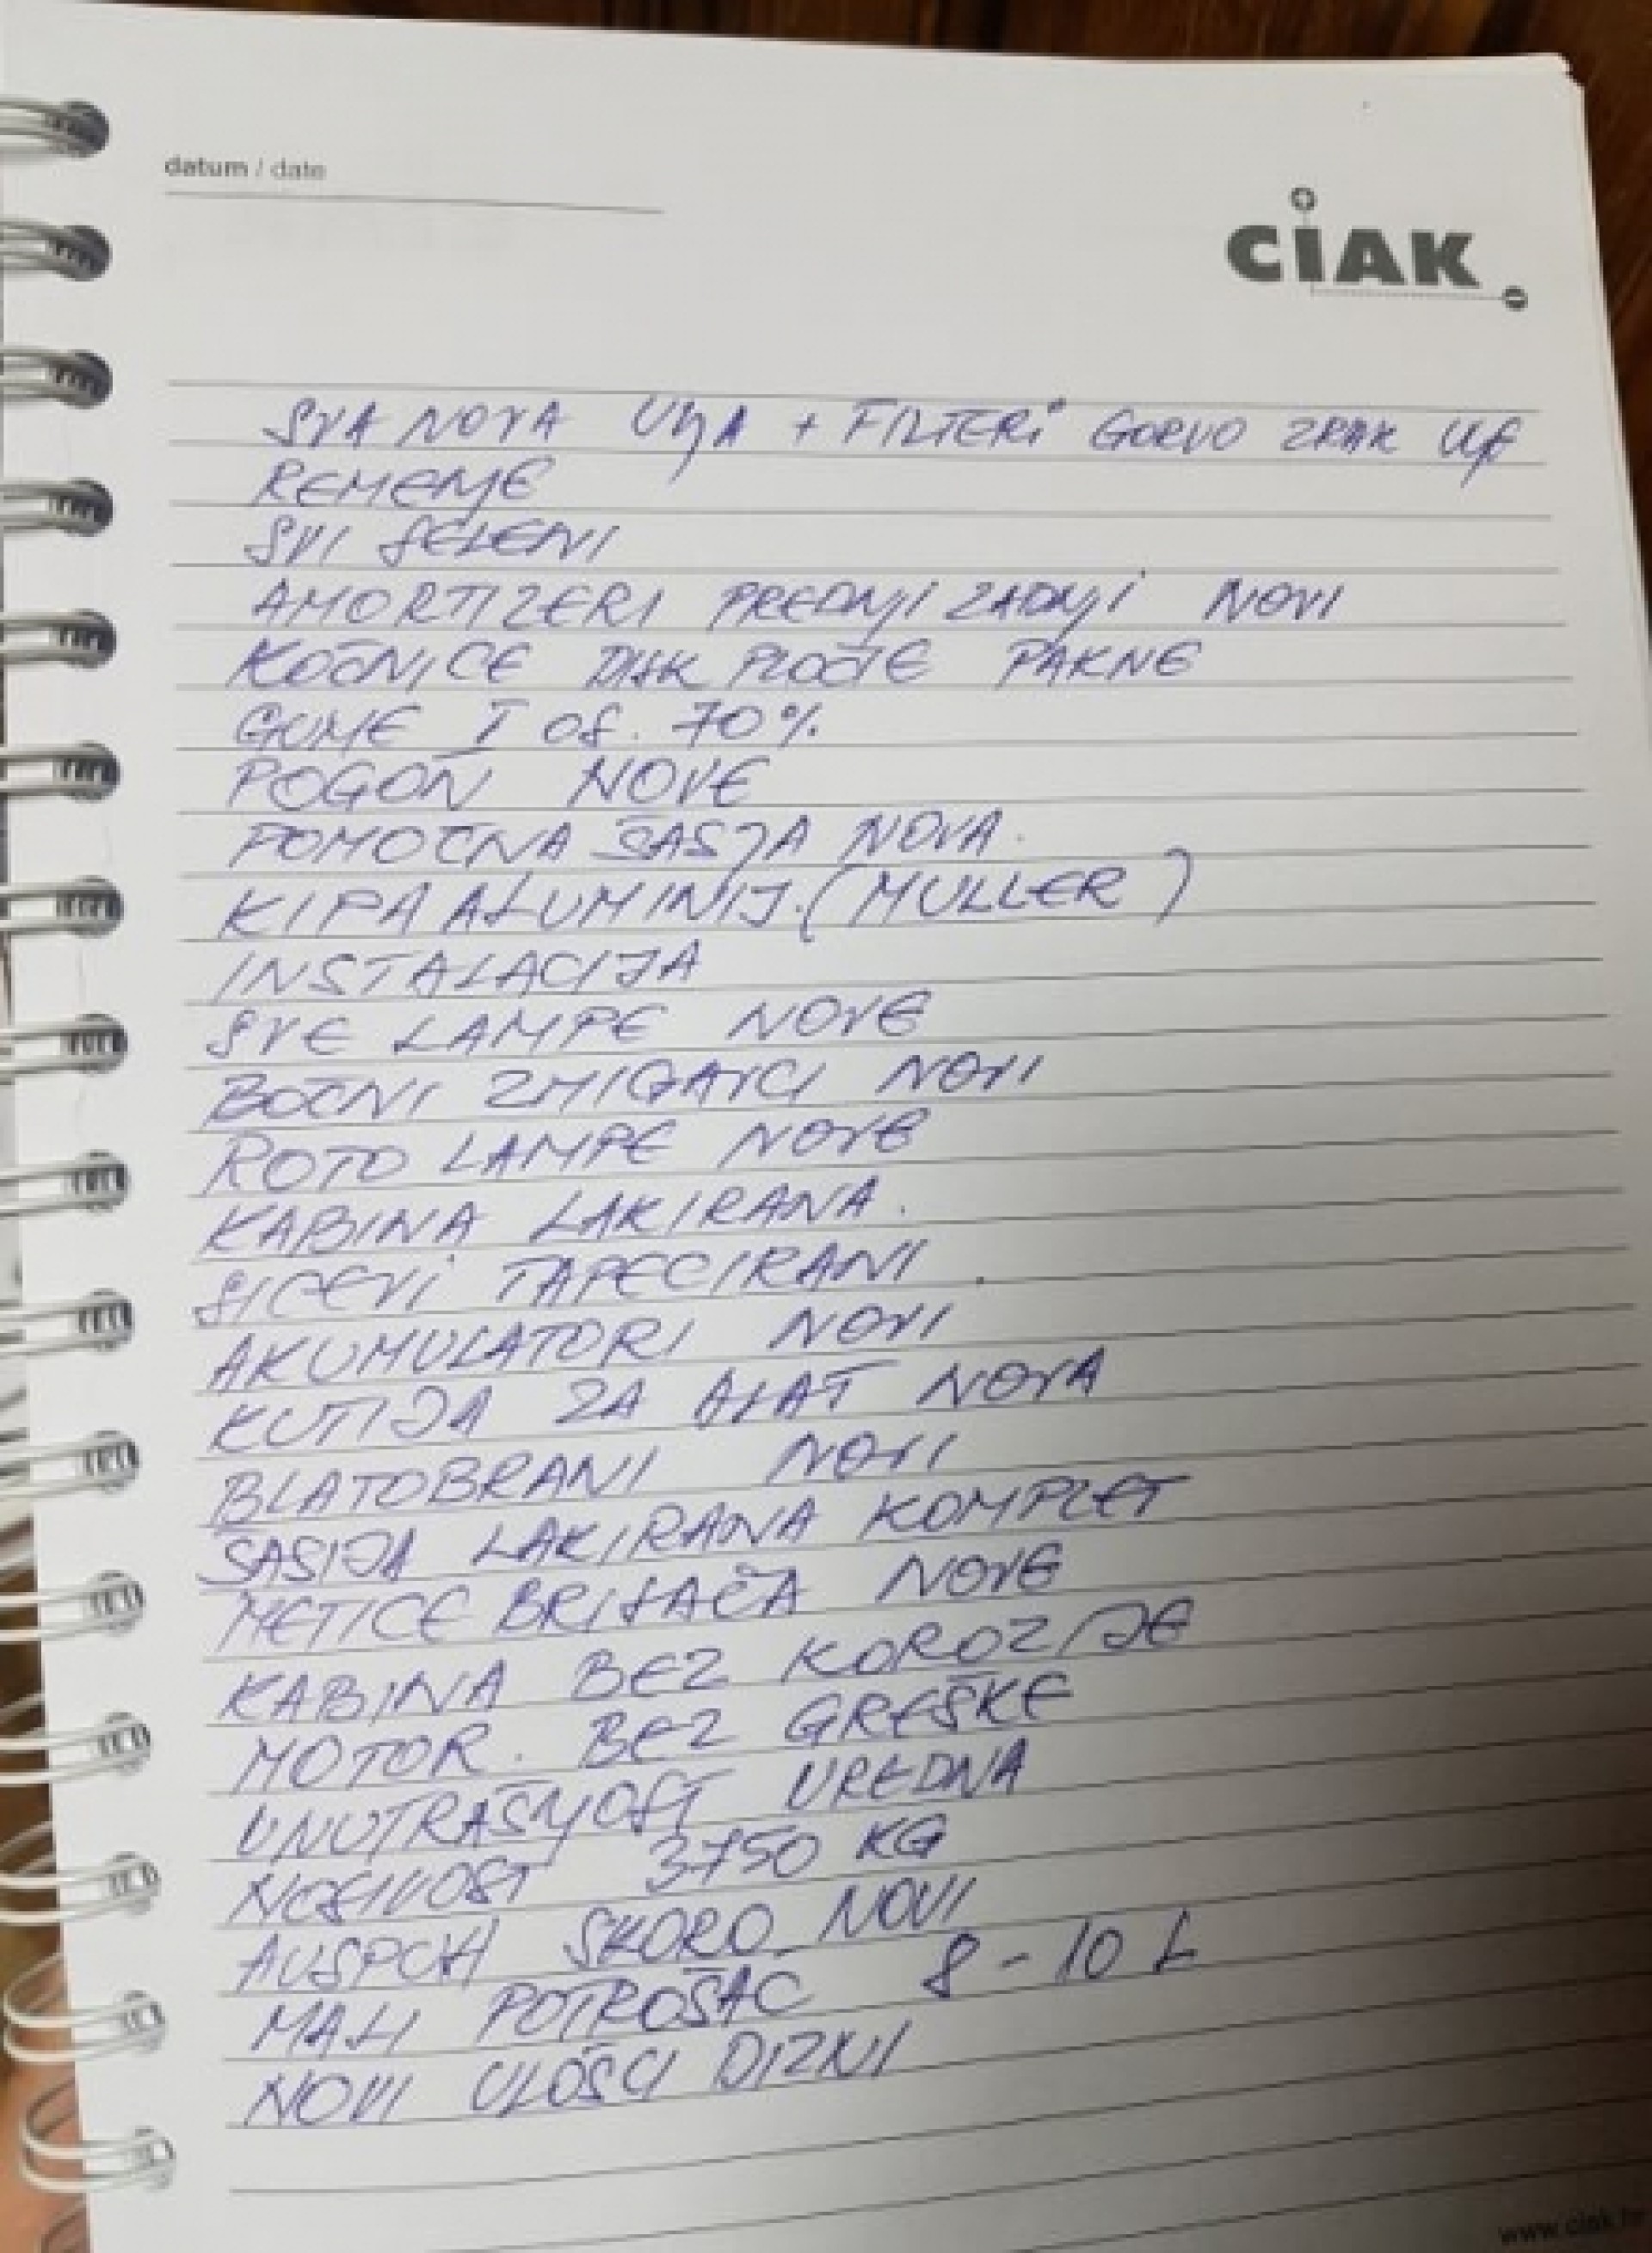 datum / date
CIAK
SVA NOVA ULJA + FILTERI GORIVO ZRAK ULJE
REMENJE
SVI SELENI
AMORTIZERI PREDNJI ZADNJI NOVI
KOČNICE DISK PLOČE PAKNE
GUME I OS. 70%
POGON NOVE
POMOČNA ŠASJA NOVA.
KIPA ALUMINIJ. (MULLER)
INSTALACIJA
SVE LAMPE NOVE
BOČNI ZMIGAVCI NOVI
ROTO LAMPE NOVE
KABINA LAKIRANA.
SICEVI TAPECIRANI.
AKUMULATORI NOVI
KUTIJA ZA ALAT NOVA
BLATOBRANI NOVI
ŠASIJA LAKIRANA KOMPLET
METICE BRISAČA NOVE
KABINA BEZ KOROZIJE
MOTOR. BEZ GREŠKE
UNUTRAŠNJOST UREDNA
NOSIVOST 3750 KG
AUSPUH SKORO NOVI
MALI POTROŠAČ 8-10 L
NOVI ULOŠCI DIZNI
www.ciak.hr